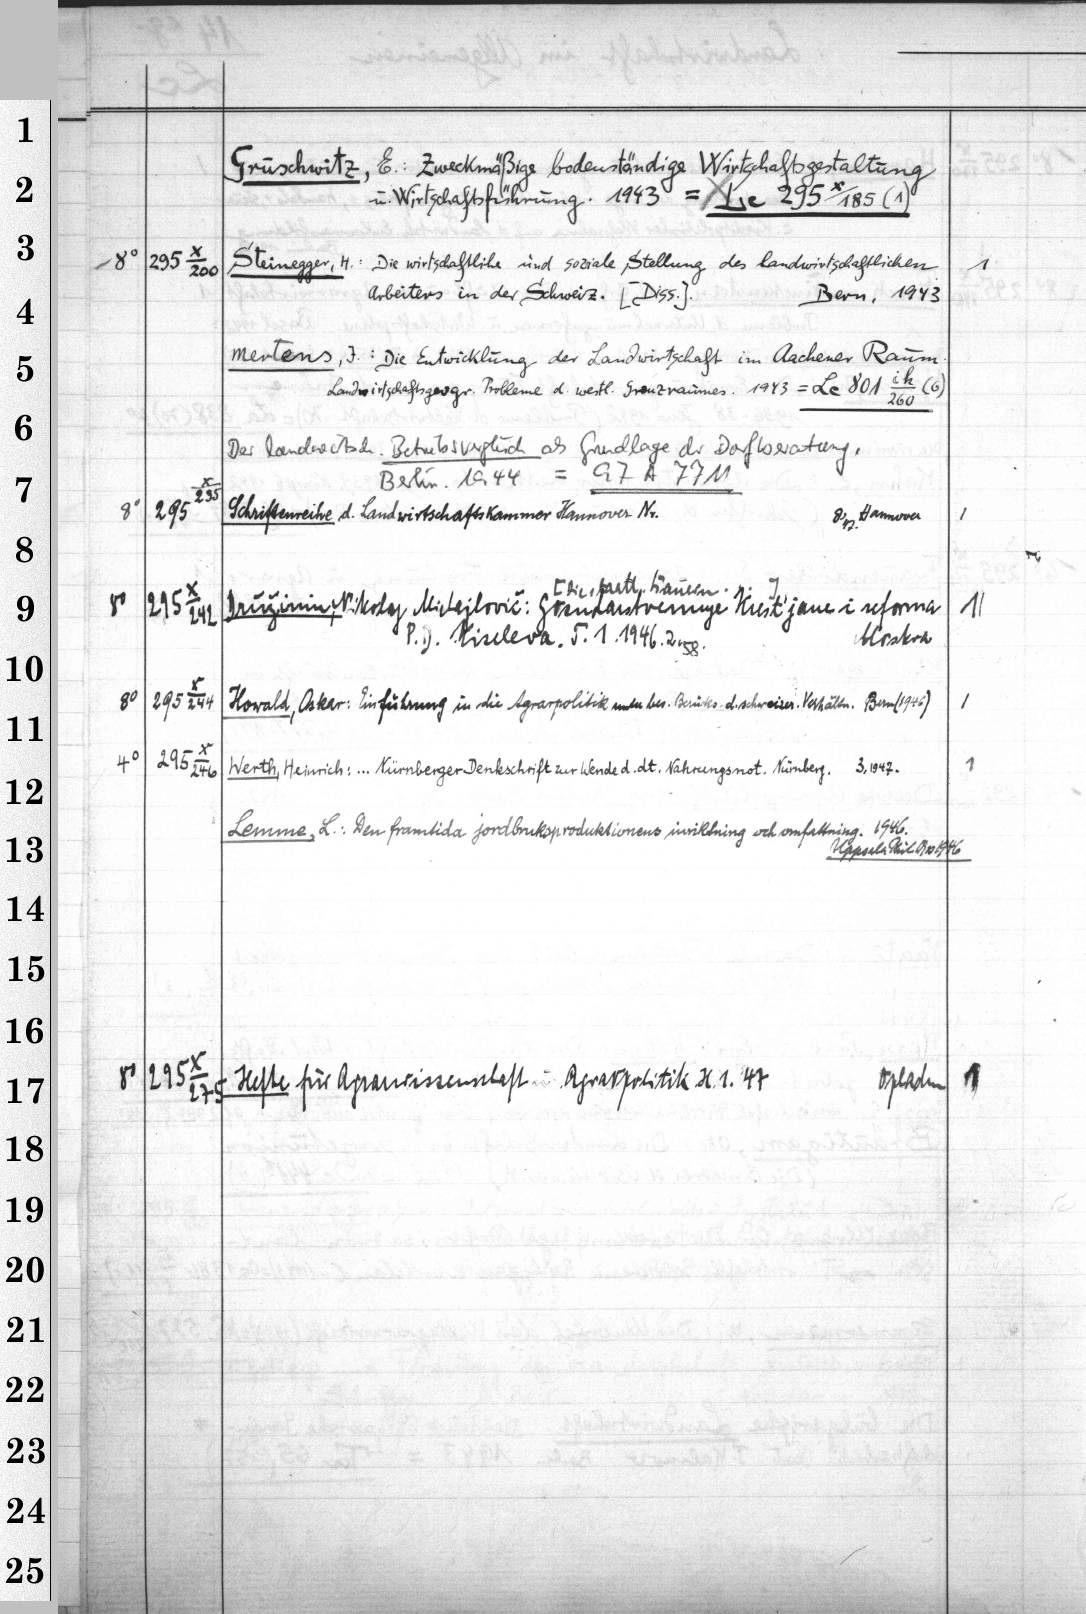 1
Gruschwitz, E.: Zweckmäßige bodenständige Wirtschaftsgestaltung
2
u. Wirtschaftsführung. 1943 = Lc 295 x/185 (1)
3
8° 295 x/200 Steinegger, H.: Die wirtschaftliche und soziale Stellung des landwirtschaftlichen 1
Arbeiters in der Schweiz. [Diss.]. Bern, 1943
4
5
Mertens, J.: Die Entwicklung der Landwirtschaft im Aachener Raum.
Landwirtschaftsgeogr. Probleme d. westl. Grenzraumes. 1943 = Lc 801 ik/260 (6)
6
Der landwirtsch. Betriebsvergleich als Grundlage der Dorfberatung.
Berlin. 1944 = 97 A 7711
7
8° 295 x/235 Schriftenreihe d. Landwirtschaftskammer Hannover Nr. 8,47. Hannover 1
8
[Die, Bauern. ]
9
8° 295 x/242 Družinin, Nikolaj Michajlovič: Gosudarstvennye Krest'jane i reforma 1
P. D. Kiseleva. T. 1. 1946. 2.58. Moskva
10
8° 295 x/244 Howald, Oskar: Einführung in die Agrarpolitik unter bes. Berücks. d. schweizer. Verhältn. Bern (1946) 1
11
4° 295 x/246 Werth, Heinrich: ... Nürnberger Denkschrift zur Wende d. dt. Nahrungsnot. Nürnberg. 3, 1947. 1
12
Lemme, L.: Den framtida jordbruksproduktionens inriktning och omfattning. 1946.
13
Uppsala Phil. 1946
14
15
16
8° 295 x/275 Hefte für Agrarwissenschaft u Agrarpolitik H. 1. 47 Opladen 1
17
18
19
20
21
22
23
24
25